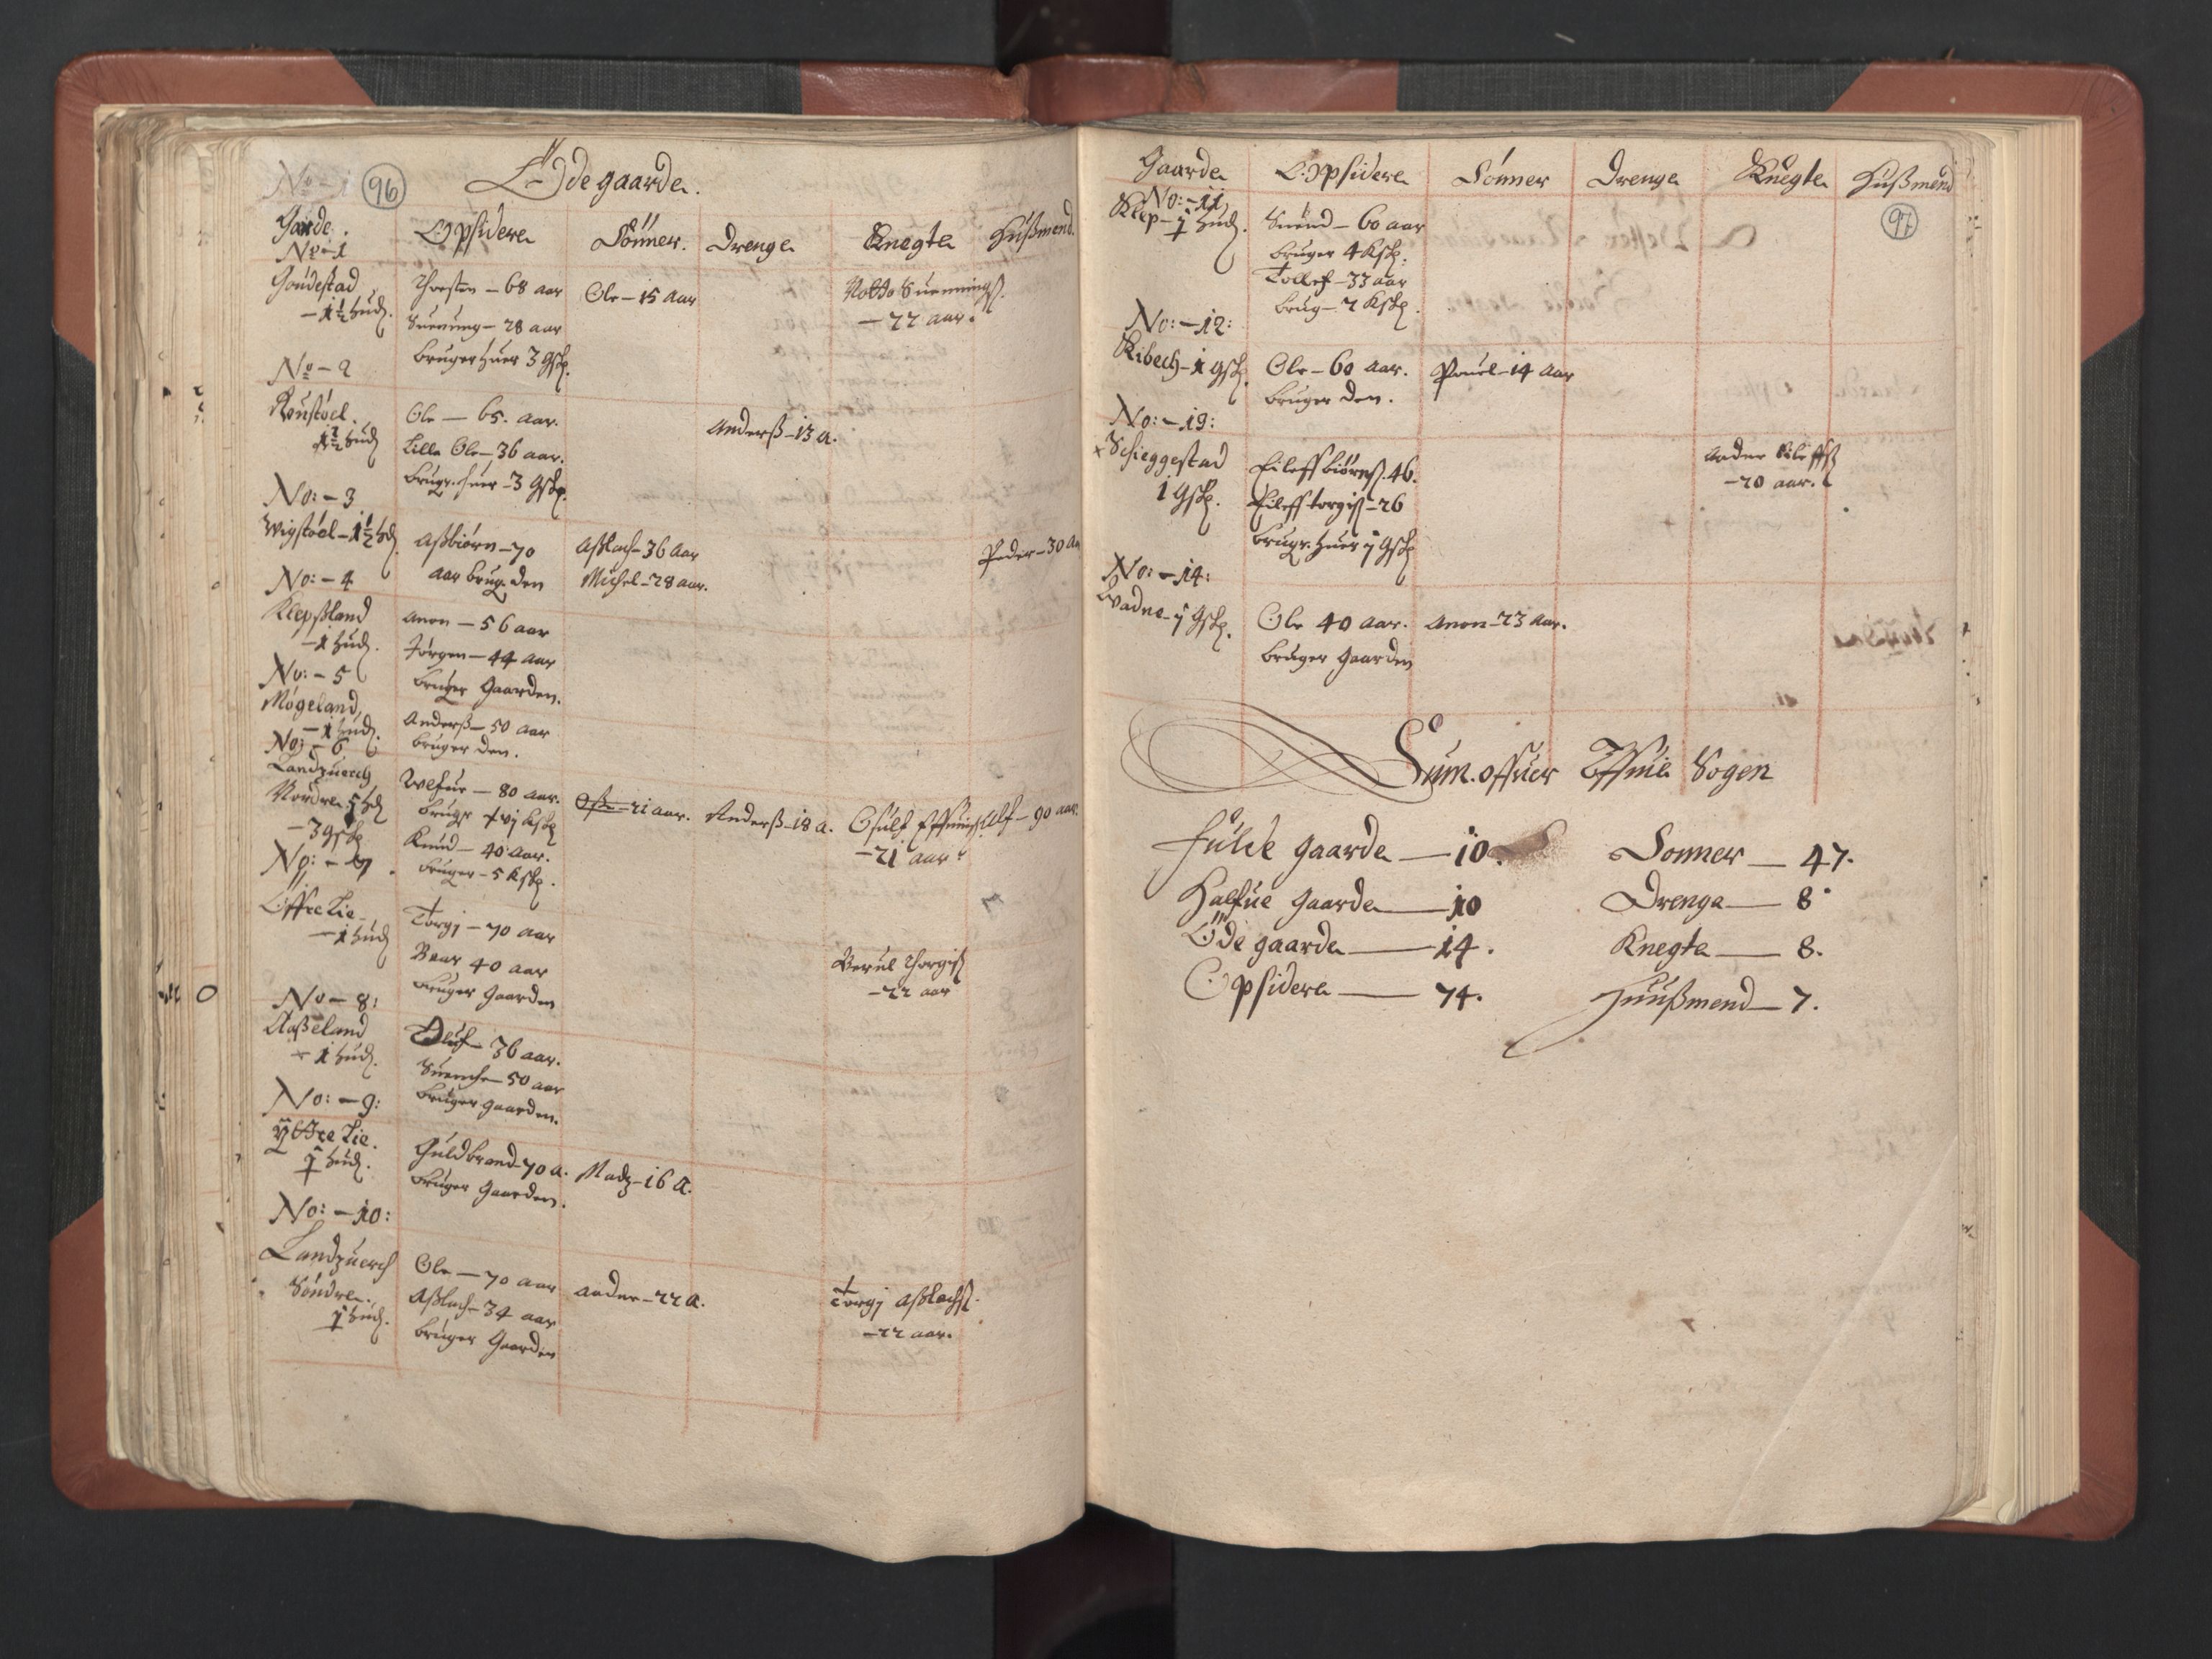 No - 1
96
Øde gaarde.
Gaarde. Opsidere Sönner. Drenge Knegte Hußmend.
No - 1
Goudestad Thorsten - 68 aar Ole - 15 Aar
- 1½ hud. Suenung - 28 aar - 22 aar.
bruger huer 3 Gsk.
No - 2
Ole - 65. aar. Anderß - 13 a.
1½ hud Lille Ole - 36 aar.
brugr. huer - 3 Gsk.
No: - 3
Wigstöel - 1½ hd. Aßbiörn - 70 Aßlach - 36 Aar Peder - 30 Aa
aar brug. den Michel - 28 aar.
No: - 4
Klepßland Anon - 56 aar
- 1 hud. Jörgen - 44 aar
bruger Gaarden.
No: - 5
Mögeland, Anderß - 50 aar
- 1 hud. bruger den.
No: - 6
Landzuerch - 80 aar.
Nordre - 21 aar. Anderß - 18 a. Ulf - 90 aar.
- 3 gsk - 21 aar
Knud - 40 aar.
bruger - 5 Ksk.
No: - 7
Öffre Lie Torgj - 70 aar
- 1 hud 40 aar
bruger Gaarden - 22 aar
No - 8:
Aaßeland Oluf - 36 aar.
- 1 hud. - 50 aar
bruger gaarden.
No: - 9:
Yttre Lie. Guldbrand - 70 a. Madz - 16 A.
1 hud. bruger Gaarden.
No: - 10:
Landzuerch Ole - 70 aar - 22 A. Torgj Aßlachß.
Söndre. Aßlach - 34 aar - 22 aar.
1 hud. bruger Gaarden
Gaarde Opsidere Sönner Drenge Knegte Hußmend
97
No: - 11,
Klep - 1 hud. Suend - 60 aar
bruger 4 Ksk.
Tollef - 33 aar
brug - 2 Ksk.
No: - 12:
Ribech - 1 gsk. Ole - 60 Aar. Pouel - 14 Aar
bruger den.
No: - 13:
Schieggestad Eileff biörnß. 46.
1 Gsk. Eileff torgiß - 26 - 20 aar.
brugr. huer Gsk
No: - 14:
Ole 40 aar. Anon - 23 Aar.
bruger Gaarden
Sum. offuer Sogen
Fulde gaarde — 10. Sonner — 47.
Halfue Gaarde — 10 Drenge — 8
Öde gaarde — 14. Knegte — 8.
Opsidere — 74. Huußmend — 7.